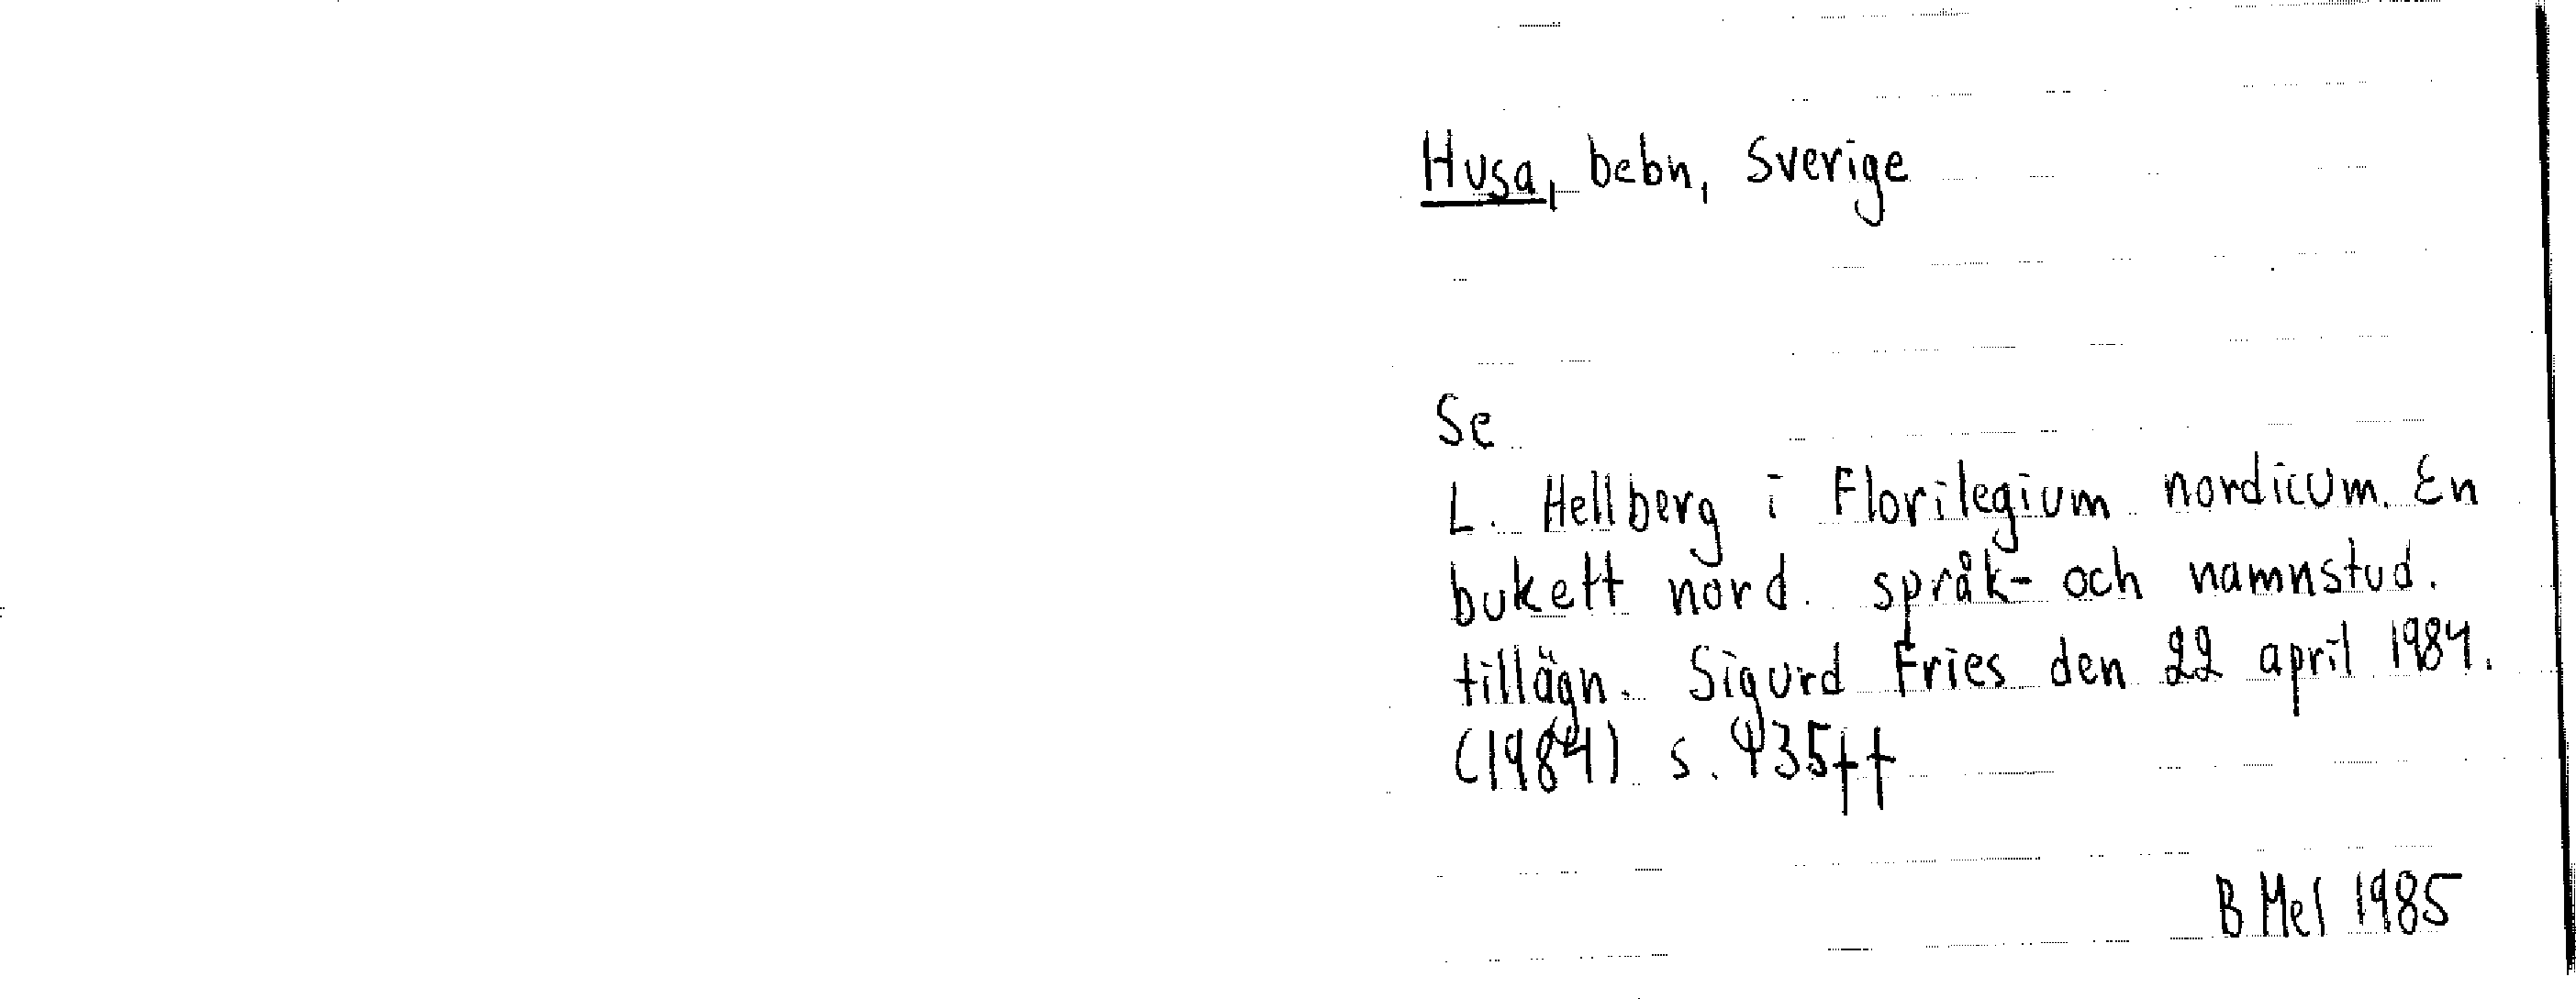 Husa, bebn, Sverige
Se
L. Hellberg i Florilegium nordicum. En
bukett nord. språk- och namnstud.
tillägn. Sigurd Fries den 22 april 1984.
(1984) s. 435ff
B Mel 1985